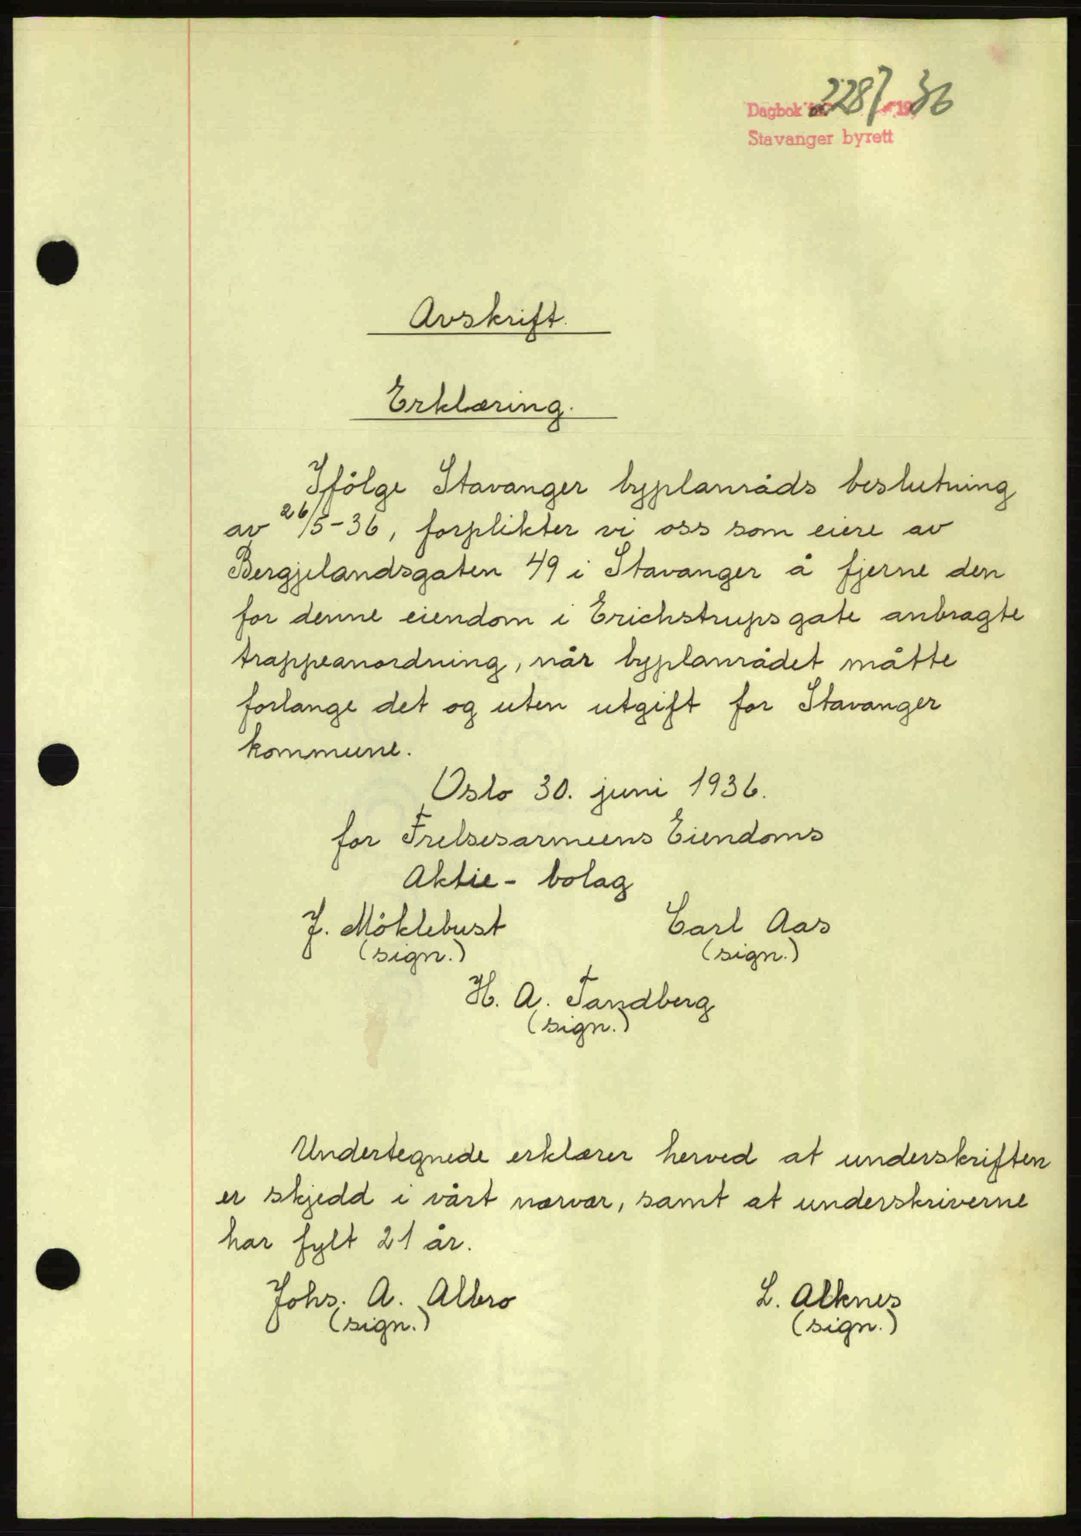 Dagbok nr. 2287 1936
Stavanger byrett
Avskrift.
Erklæring.
Ifölge Stavanger byplanråds beslutning
av 26/5-36, forplikter vi oss som eiere av
Bergjelandsgaten 49 i Stavanger å fjerne den
for denne eiendom i Erichstrups gate anbragte
trappeanordning, når byplanrådet måtte
forlange det og uten utgift for Stavanger
kommune.
Oslo 30. juni 1936.
for Frelsesarmeens Eiendoms
Aktie-bolag
J. Möklebust Carl Aas
(sign.) (sign.)
H. A. Tandberg
(sign.)
Undertegnede erklærer herved at underskriften
er skjedd i vårt nærvær, samt at underskriverne
har fylt 21 år.
Johs. A. Albro L. Alknes
(sign.) (sign.)